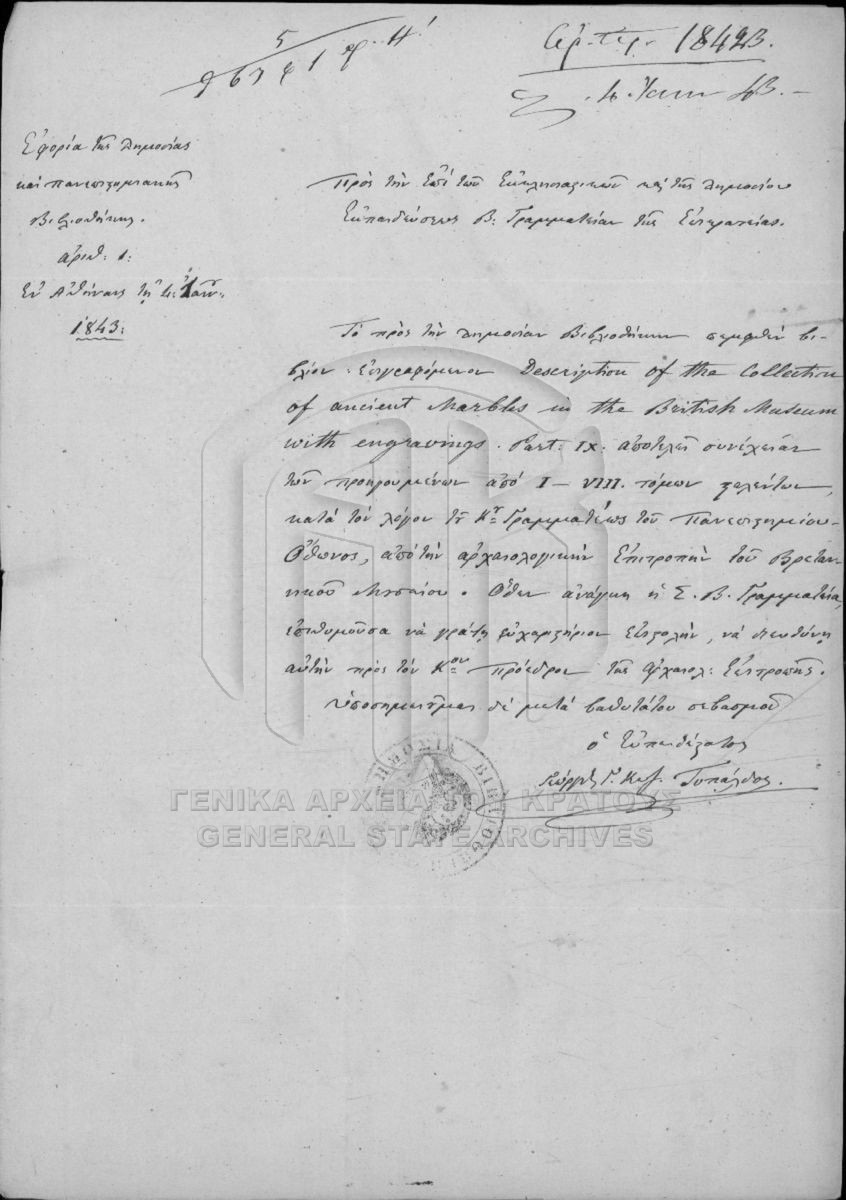 5
967 & 1 φ. Η'
Ἀρ. Πρ. 18423.
4 Ἰαν 43.
Ἐφορία τῆς Δημοσίας
καὶ Πανεπιστημιακῆς
Βιβλιοθήκης.
ἀριθ: 1:
Ἐν Ἀθήναις τῇ 4: Ἰαν:
1843:
Πρὸς τὴν ἐπὶ τῶν Ἐκκλησιαστικῶν καὶ τῆς Δημοσίου
Ἐκπαιδεύσεως Β: Γραμματείαν τῆς Ἐπικρατείας.
Τὸ πρὸς τὴν Δημοσίαν Βιβλιοθήκην πεμφθὲν βι-
βλίον ἐπιγραφόμενον Description of the Collection
of ancient Marbles in the British Museum
with engravings. Part: IX: ἀποτελεῖ συνέχειαν
τῶν προηγουμένων ἀπὸ I–VIII. τόμων σταλέντων,
κατὰ τὸν λόγον τοῦ Κυ Γραμματέως τοῦ Πανεπιστημίου
Ὄθωνος, ἀπὸ τὴν ἀρχαιολογικὴν Ἐπιτροπὴν τοῦ Βρεταν-
νικοῦ Μουσείου. Ὅθεν ἀνάγκη ἡ Σ. Β. Γραμματεία,
ἐπιθυμοῦσα νὰ γράψῃ εὐχαριστήριον ἐπιστολὴν, νὰ διευθύνῃ
αὐτὴν πρὸς τὸν Κον Πρόεδρον τῆς Ἀρχαιολ: Ἐπιτροπῆς.
Ὑποσημειοῦμαι δὲ μετὰ βαθυτάτου σεβασμοῦ
ὁ Εὐπειθέστατος
Γεώργιος Γ. Κοζ. Τυπάλδος.
ΔΗΜΟΣΙΑ ΒΙΒΛΙΟΘ
ΓΕΝΙΚΑ ΑΡΧΕΙΑ ΤΟΥ ΚΡΑΤΟΥΣ
GENERAL STATE ARCHIVES